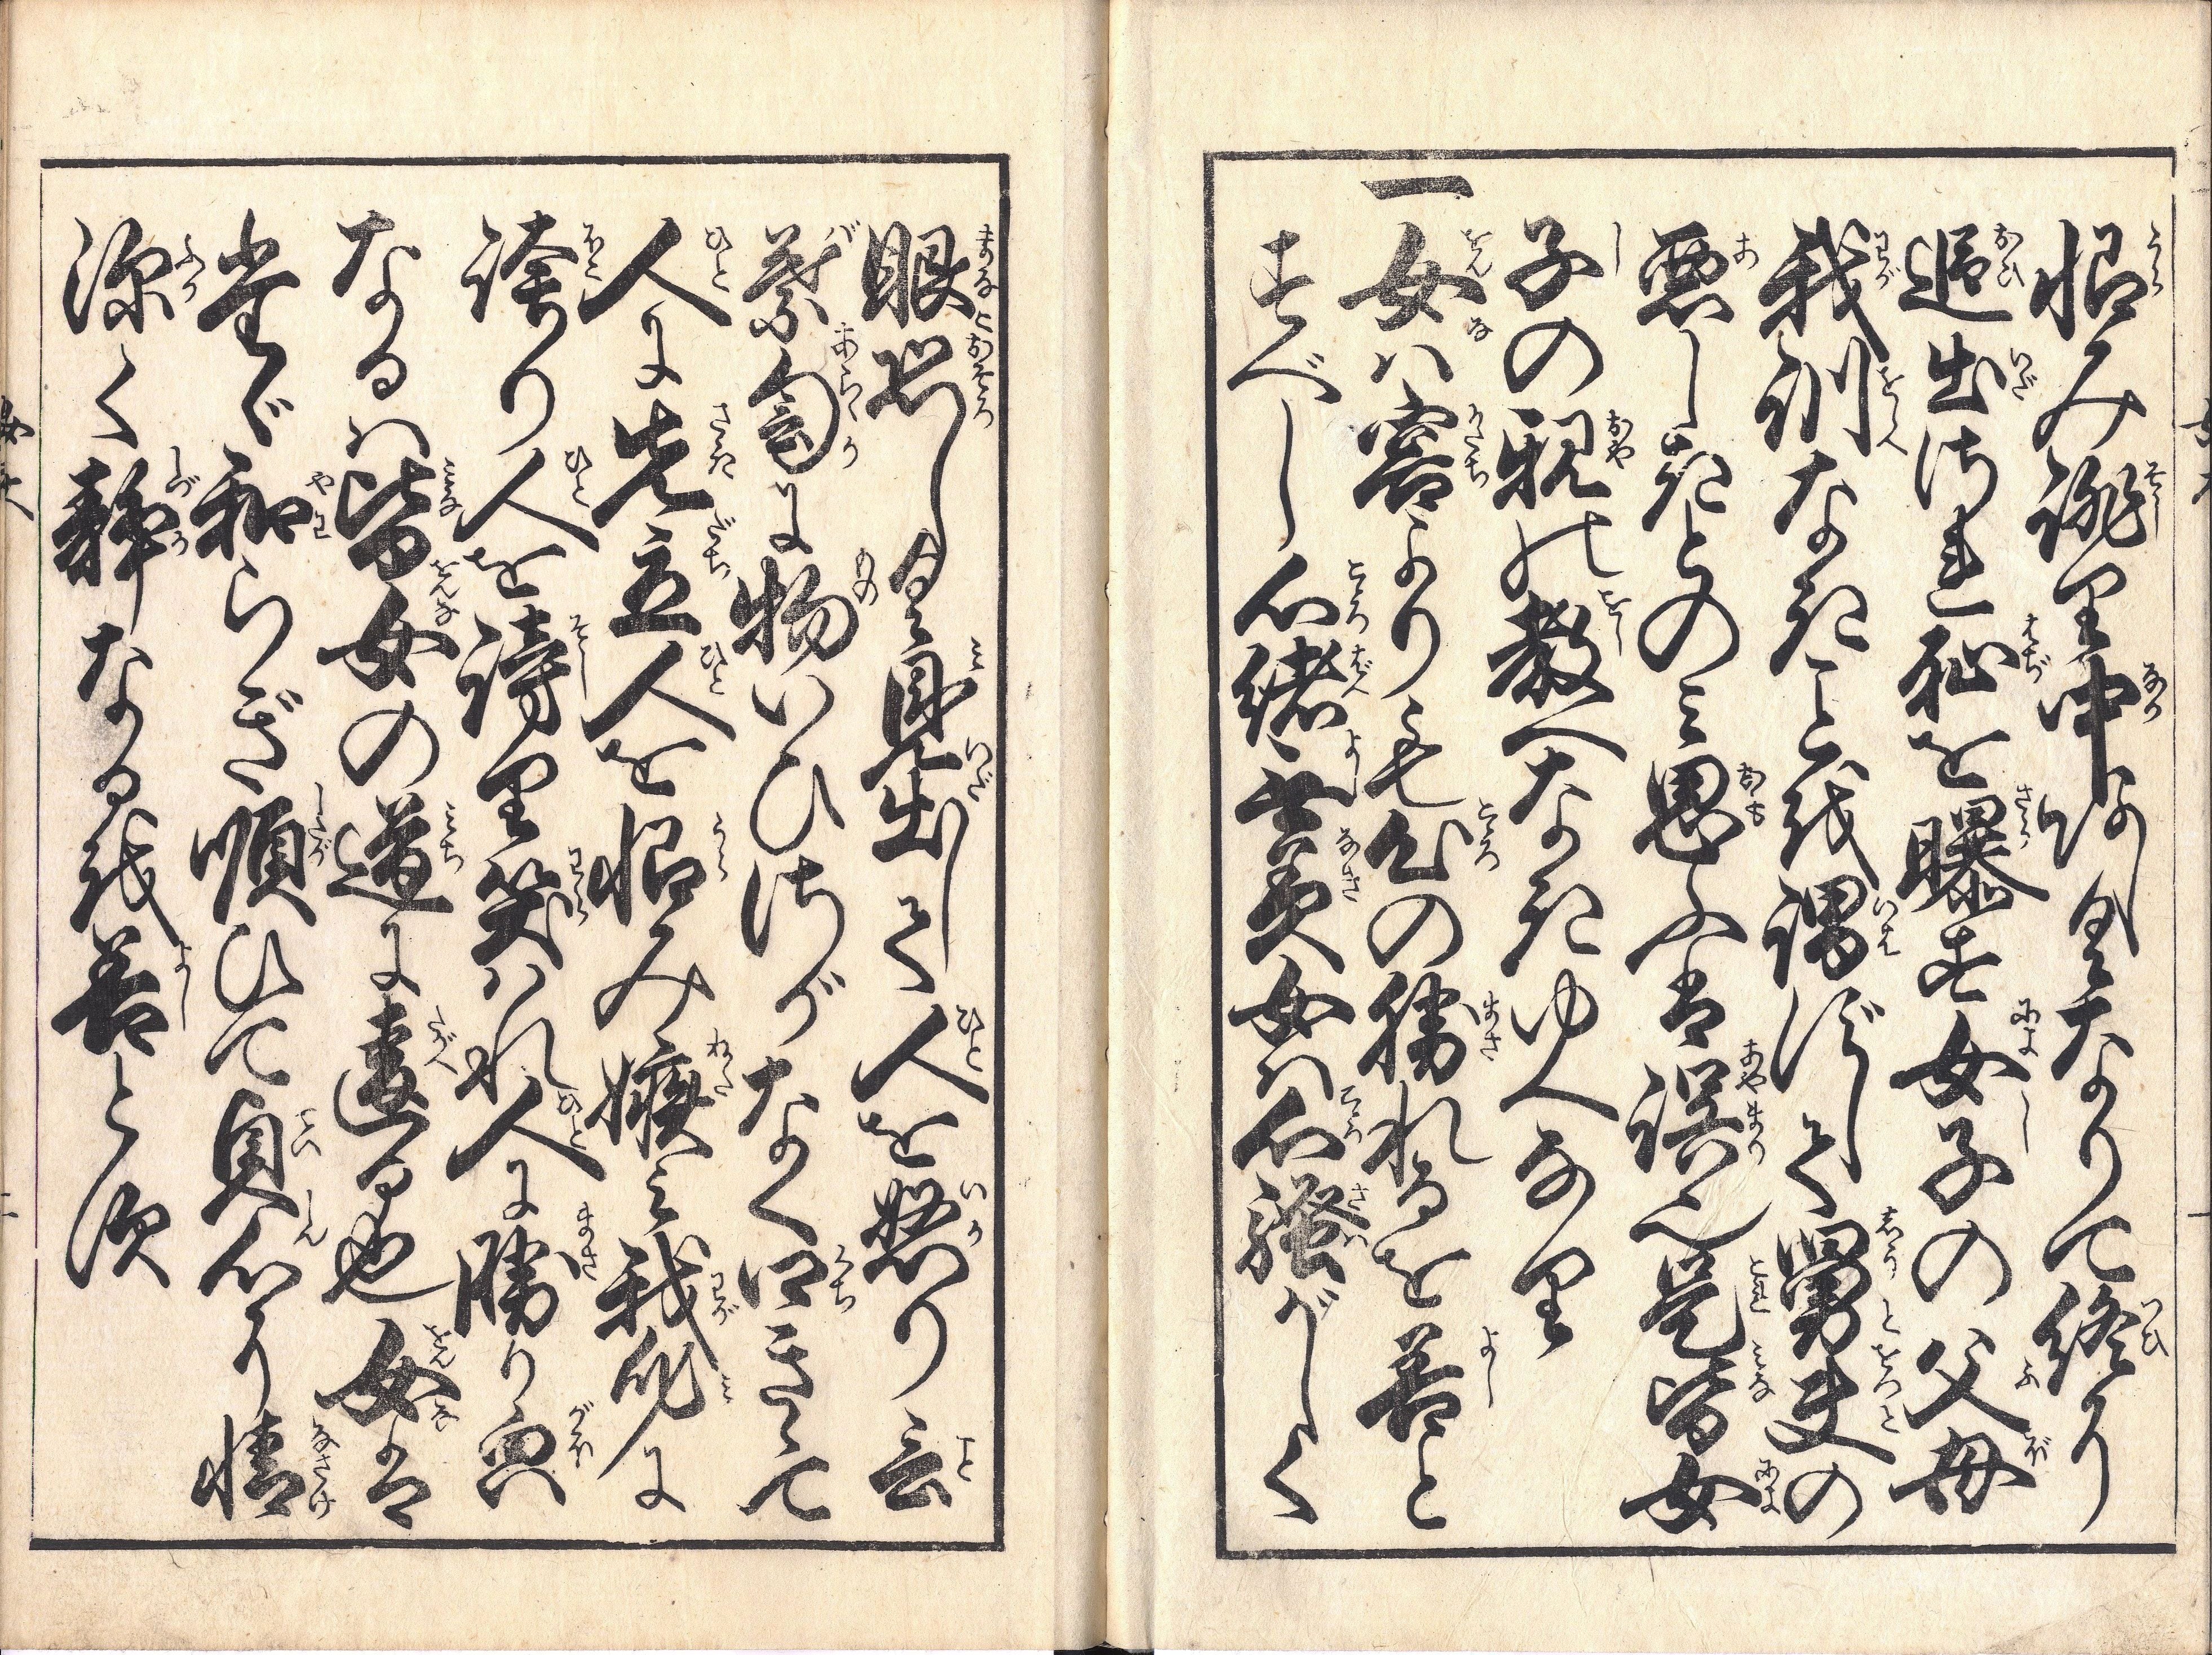 恨み誹り中悪敷なりて終に
追出され恥を曝す女子の父母
我訓なきことを謂ずして舅夫の
悪しきとのみ思ふは誤也是皆女
子の親の教へなきゆへなり
一女は容よりも心の勝れるを善と
すべし心緒無美女は心騒がしく
眼恐しく見出して人を怒り言
葉訇に物いひさがなく口きゝて
人に先立人を恨み嫉み我身に
誇り人を謗り笑はれ人に勝り皃
なるは皆女の道に違る也女は
唯和らぎ順ひて貞心に情
深く静なるを善とす